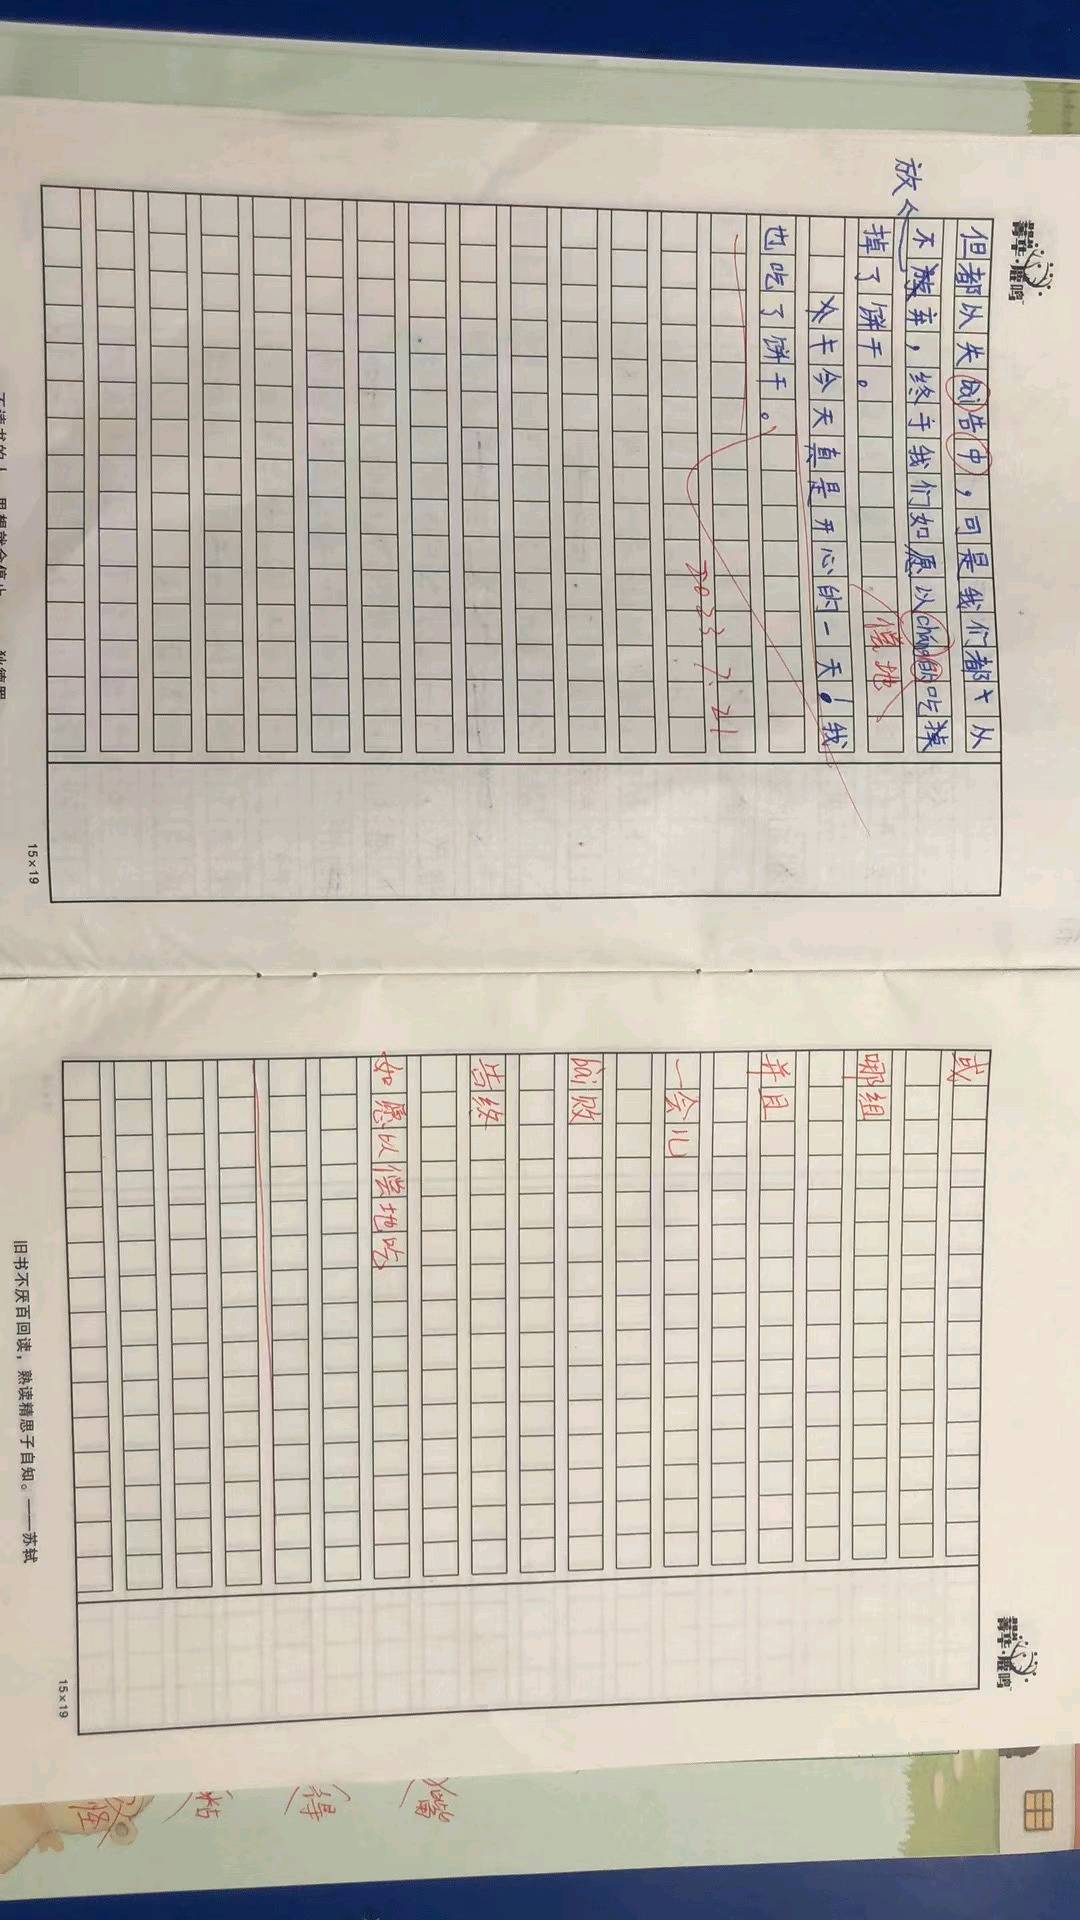 菁华·雁鸣
放
但都以失bài告中，可是我们都从
不放弃，终于我们如愿以cháng的吃掉
掉了饼干。
偿地
今天真是开心的一天！我
也吃了饼干。
2023 7.21
15×19
菁华·雁鸣
或
哪组
并且
一会儿
bài败
告终
如愿以偿地吃
旧书不厌百回读，熟读精思子自知。——苏轼
15×19
嘴
得
粘
怪